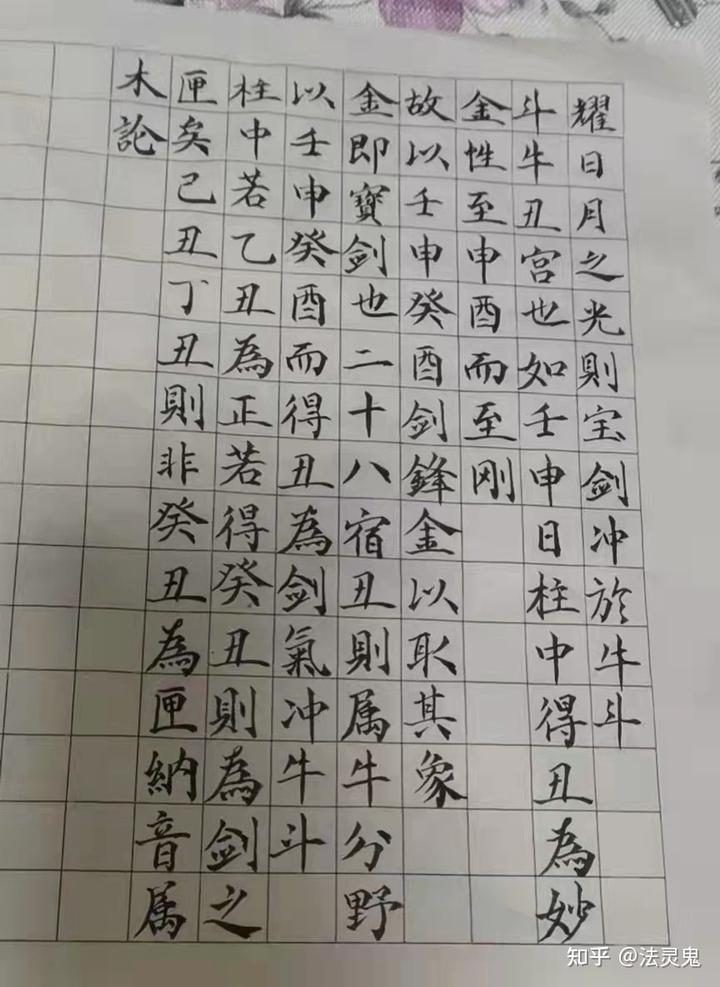 耀日月之光則宝劍冲於牛斗
斗牛丑宫也如壬申日柱中得丑為妙
金性至申酉而至刚
故以壬申癸酉劍鋒金以取其象
金即寳劍也二十八宿丑則属牛分野
以壬申癸酉而得丑為劍氣冲牛斗
柱中若乙丑為正若得癸丑則為劍之
匣矣己丑丁丑則非癸丑為匣納音属
木論
知乎 @法灵鬼